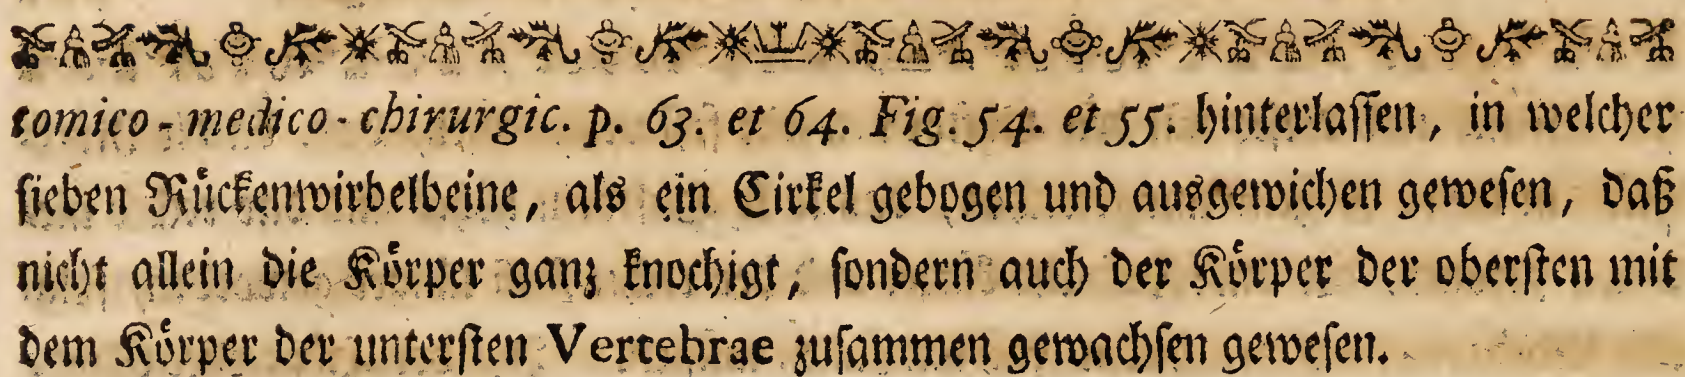 tomico - medico - chirurgic. p. 63. et 64. Fig. 54. et 55. hinterlaſſen, in welcher
ſieben Rückenwirbelbeine, als ein Cirkel gebogen und ausgewichen geweſen, daß
nicht allein die Körper ganz knochigt, ſondern auch der Körper der oberſten mit
dem Körper der unterſten Vertebrae zuſammen gewachſen geweſen.